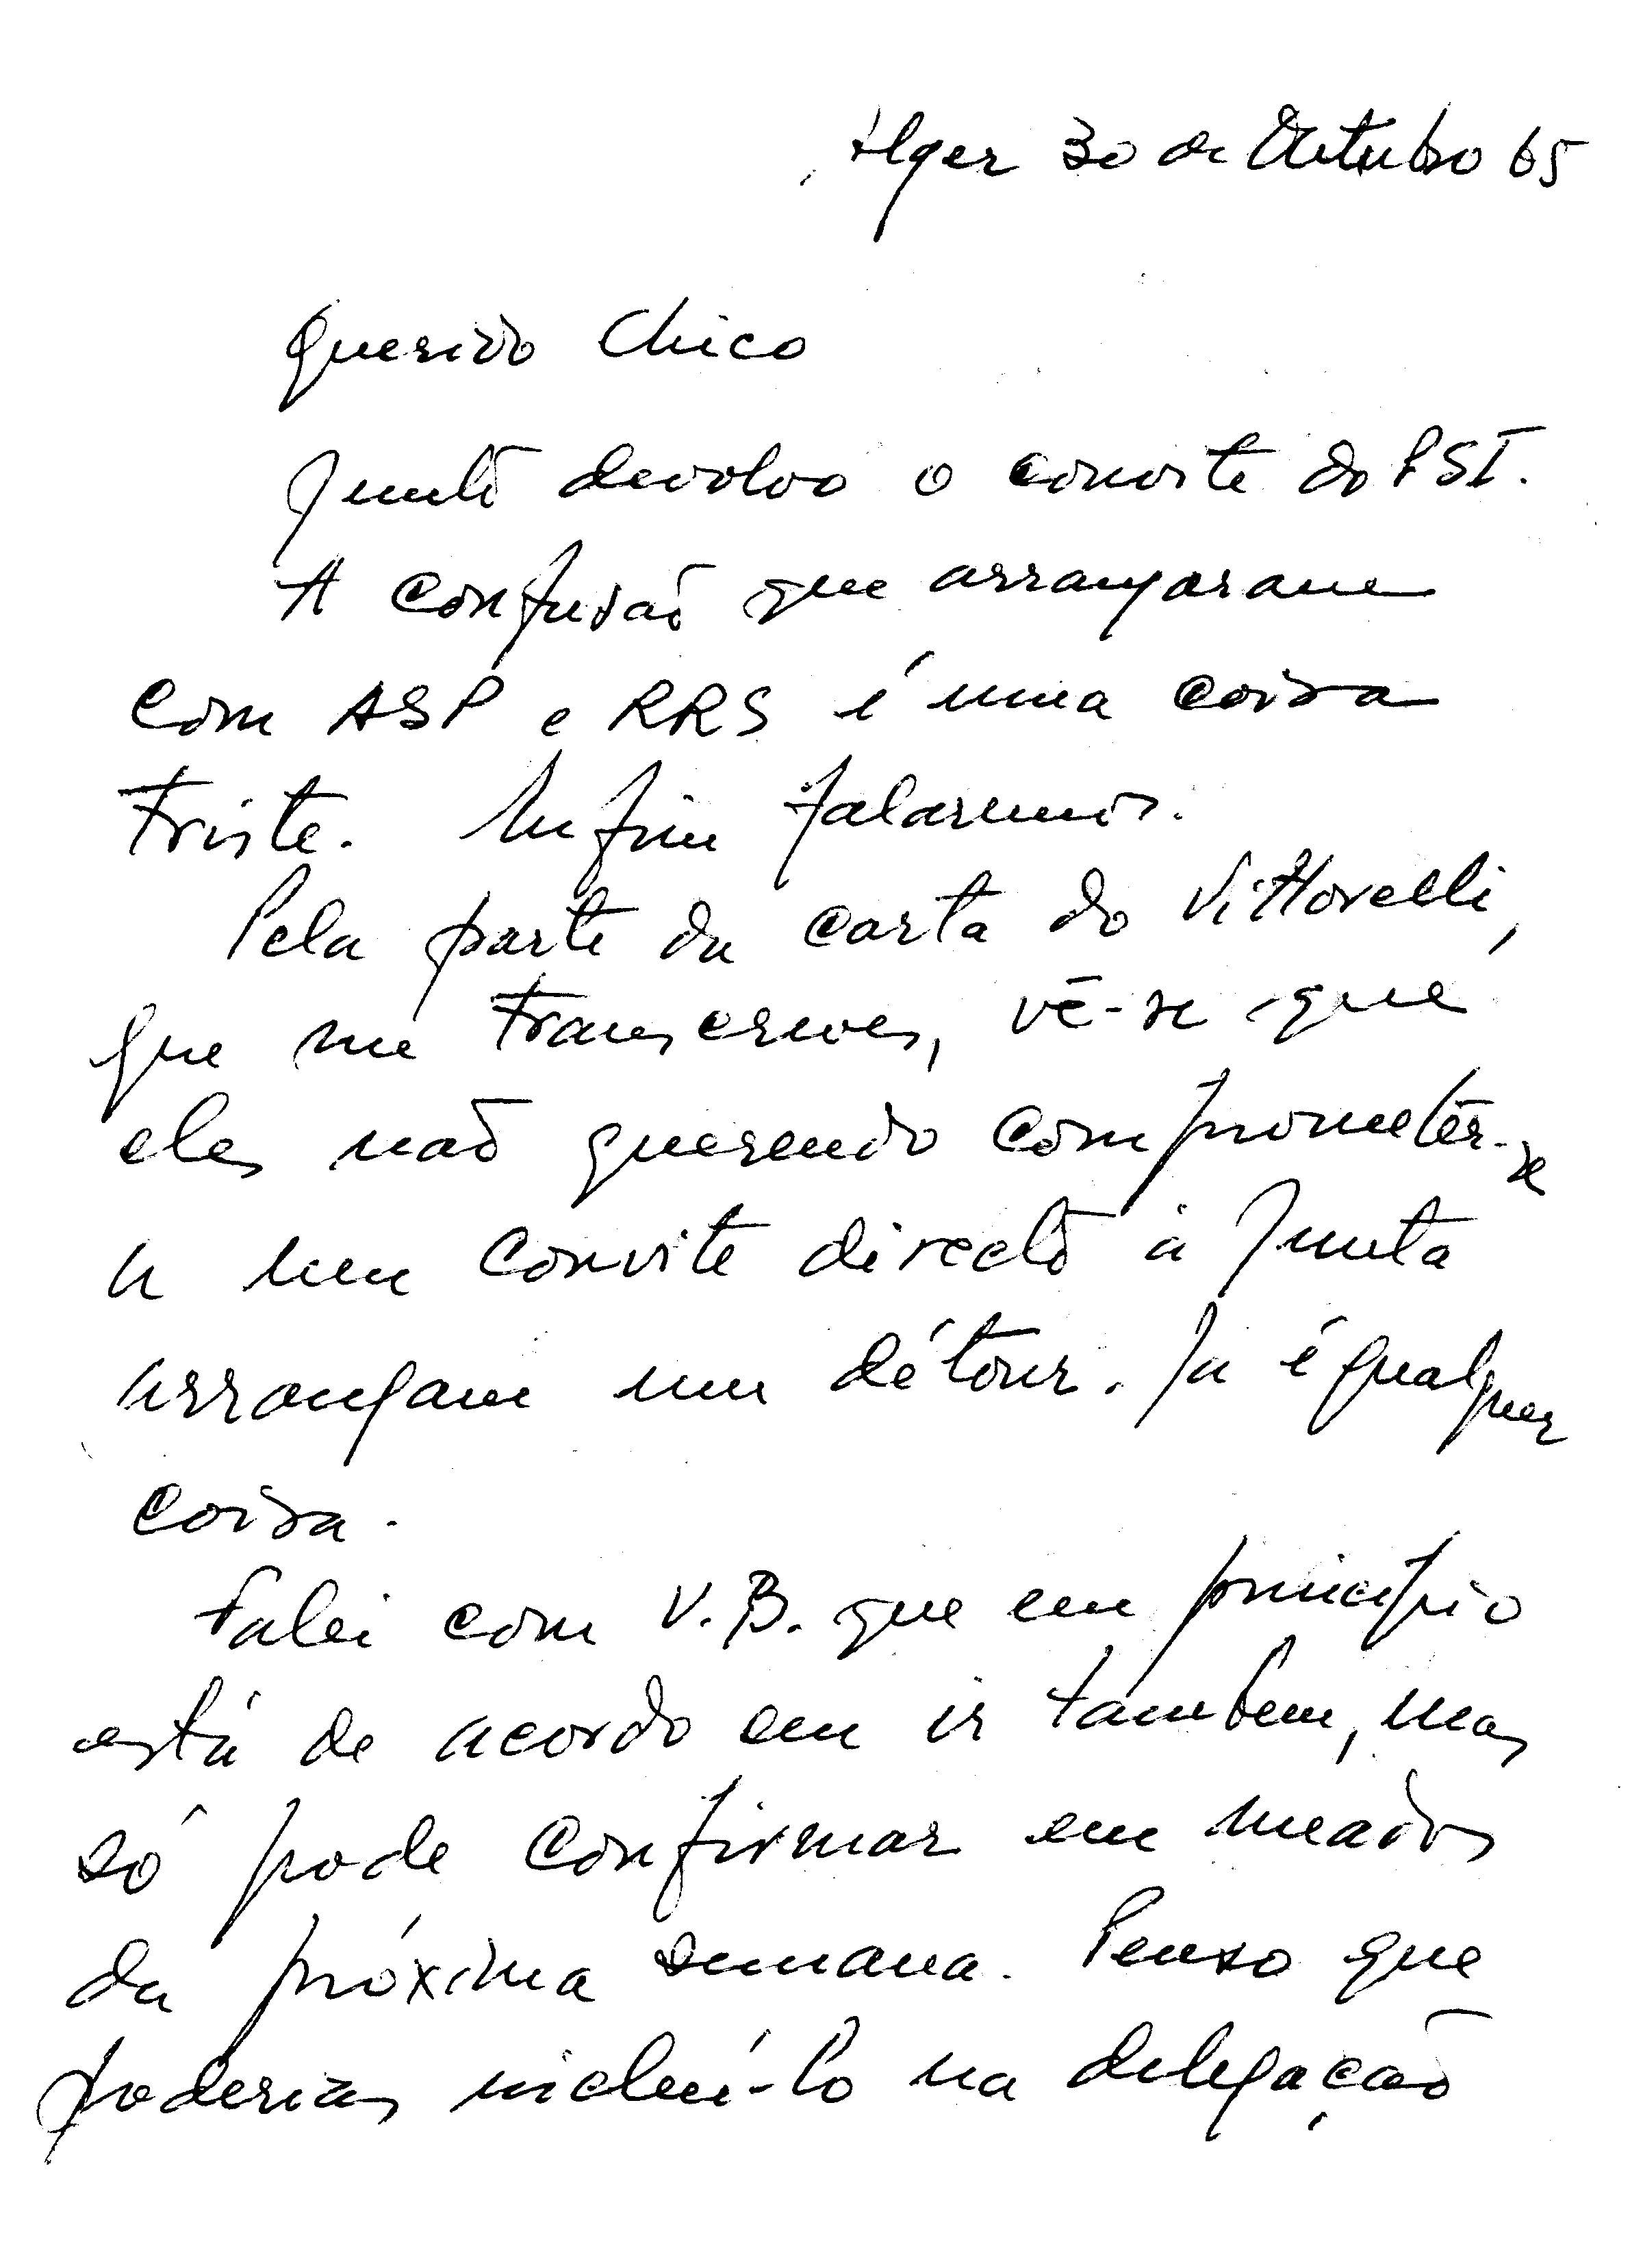 Alger 30 de Outubro 65
Querido Chico
Junto devolvo o convite do PSI.
A confusão que arranjaram
com ASP e RRS é uma coisa
triste. Enfim falaremos.
Pela parte da carta do Vittorelli,
que me transcreves, vê-se que
eles não querendo comprometer-se
a um convite directo à Junta
arranjam um détour. Já é qualquer
coisa.
Falei com V.B. que em princípio
está de acordo em ir tambem, mas
só pode confirmar em meados
da próxima semana. Penso que
poderias incluí-lo na delegação